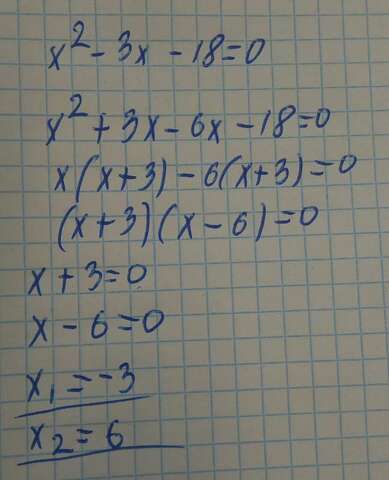 x² - 3x - 18 = 0
x² + 3x - 6x - 18 = 0
x(x+3) - 6(x+3) = 0
(x+3)(x-6) = 0
x + 3 = 0
x - 6 = 0
x₁ = -3
x₂ = 6